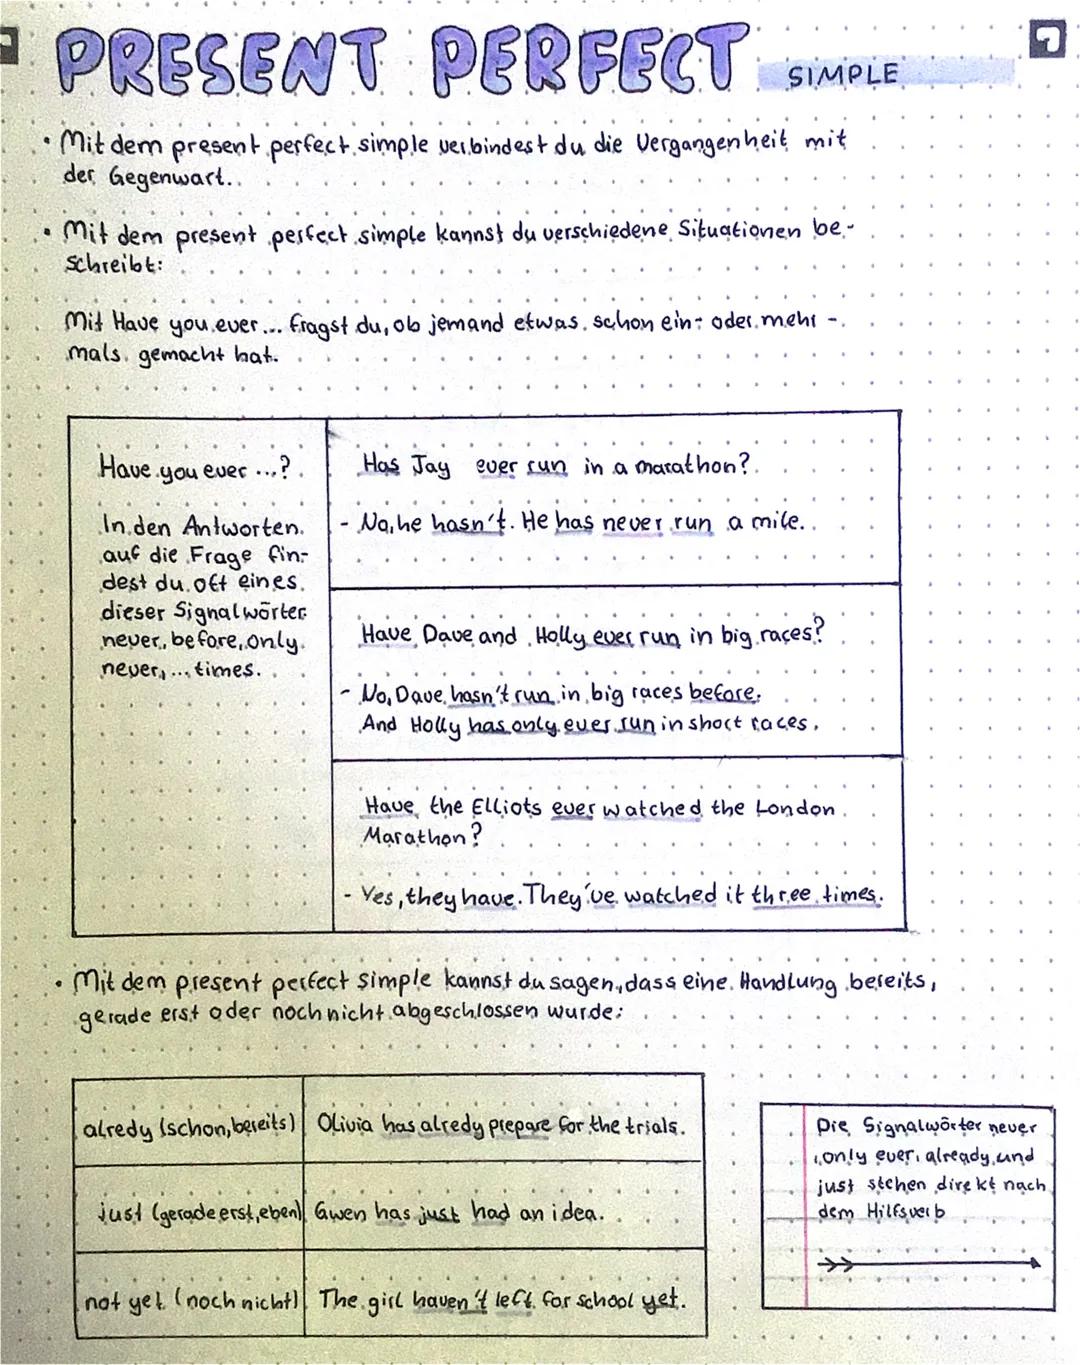 PRESENT PERFECT SIMPLE
• Mit dem present perfect simple verbindest du die Vergangenheit mit
der Gegenwart.
• Mit dem present perfect simple kannst du verschiedene Situationen be-
schreibt:
Mit Have you ever... fragst du, ob jemand etwas schon ein- oder mehr-
mals gemacht hat.
Have you ever ...?
In den Antworten
auf die Frage fin-
dest du oft eines
dieser Signalwörter
never, before, only
never, ... times.
Has Jay ever run in a marathon?
- No, he hasn't. He has never run a mile.
Have Dave and Holly ever run in big races?
- No, Dave hasn't run in big races before.
And Holly has only ever run in short races.
Have the Elliots ever watched the London
Marathon?
- Yes, they have. They've watched it three times.
• Mit dem present perfect simple kannst du sagen, dass eine Handlung bereits,
gerade erst oder noch nicht abgeschlossen wurde:
alredy (schon, bereits) Olivia has alredy prepare for the trials.
just (gerade erst, eben) Gwen has just had an idea.
not yet (noch nicht) The girl haven't left for school yet.
Die Signalwörter never
, only ever, already und
just stehen direkt nach
dem Hilfsverb